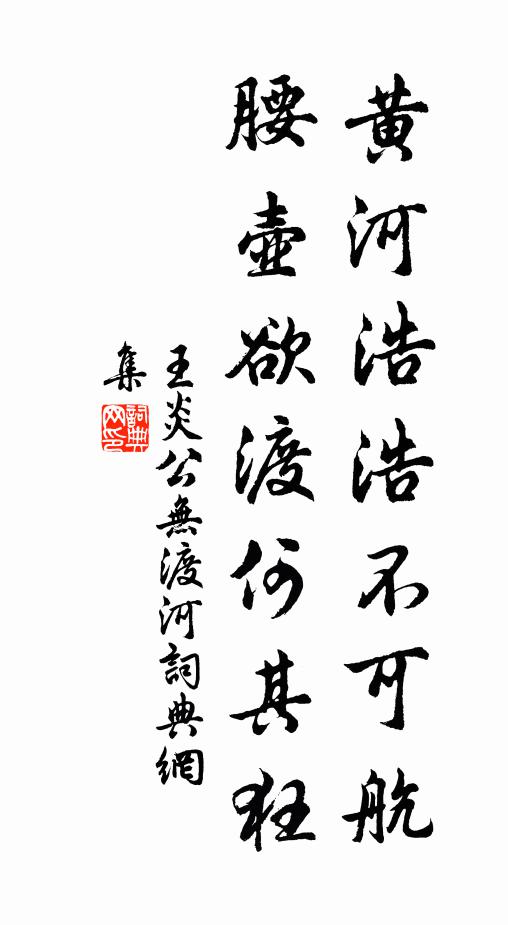 黄河浩浩不可航
腰壺欲渡何其狂
王炎公無渡河詞典網
集
詞典
网印